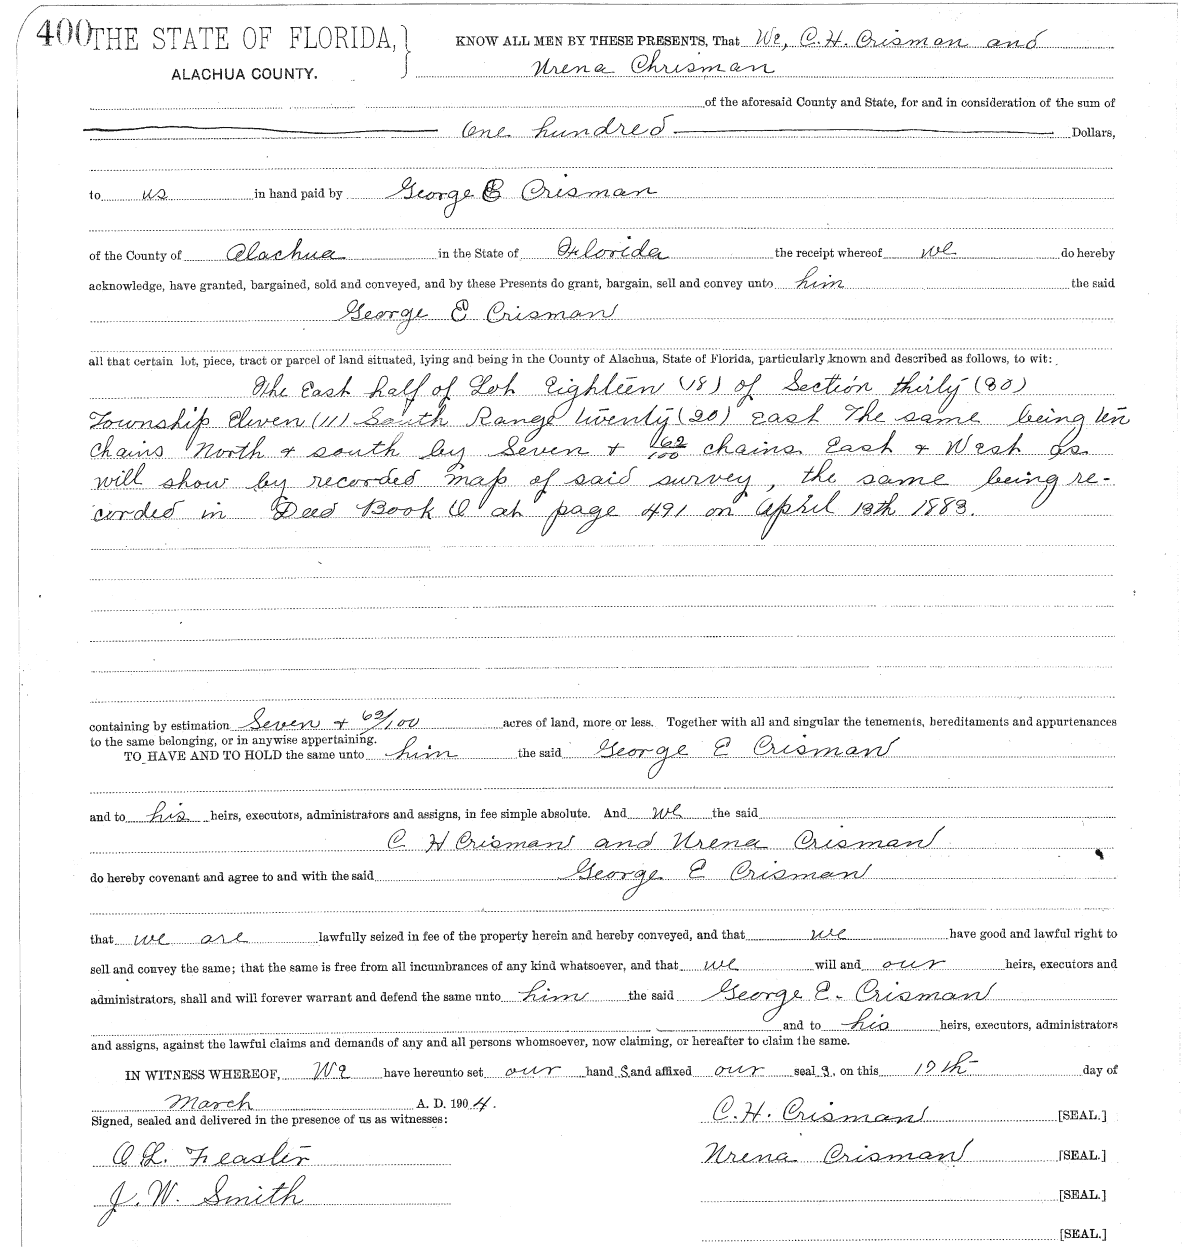 400 THE STATE OF FLORIDA, } KNOW ALL MEN BY THESE PRESENTS, That We, C. H. Crisman and
ALACHUA COUNTY. Urena Chrisman
of the aforesaid County and State, for and in consideration of the sum of
One hundred Dollars,
to us in hand paid by George E Crisman
of the County of Alachua in the State of Florida the receipt whereof we do hereby
acknowledge, have granted, bargained, sold and conveyed, and by these Presents do grant, bargain, sell and convey unto him the said
George E Crisman
all that certain lot, piece, tract or parcel of land situated, lying and being in the County of Alachua, State of Florida, particularly known and described as follows, to wit:
The East half of Lot Eighteen (18) of Section thirty (30)
Township Eleven (11) South Range twenty (20) East The same being ten
chains North & south by Seven & 62/100 chains East & West as
will show by recorded map of said survey, the same being re-
corded in Deed Book O at page 491 on April 13th 1883.
containing by estimation Seven & 62/100 acres of land, more or less. Together with all and singular the tenements, hereditaments and appurtenances
to the same belonging, or in anywise appertaining.
TO HAVE AND TO HOLD the same unto him the said George E Crisman
and to his heirs, executors, administrators and assigns, in fee simple absolute. And we the said
C H Crisman and Urena Crisman
do hereby covenant and agree to and with the said George E Crisman
that we are lawfully seized in fee of the property herein and hereby conveyed, and that we have good and lawful right to
sell and convey the same; that the same is free from all incumbrances of any kind whatsoever, and that we will and our heirs, executors and
administrators, shall and will forever warrant and defend the same unto him the said George E. Crisman
and to his heirs, executors, administrators
and assigns, against the lawful claims and demands of any and all persons whomsoever, now claiming, or hereafter to claim the same.
IN WITNESS WHEREOF, We have hereunto set our hand s and affixed our seal s, on this day of
March A. D. 1904.
Signed, sealed and delivered in the presence of us as witnesses: C. H. Crisman [SEAL.]
O L. Feaster Urena Crisman [SEAL.]
J. W. Smith [SEAL.]
[SEAL.]